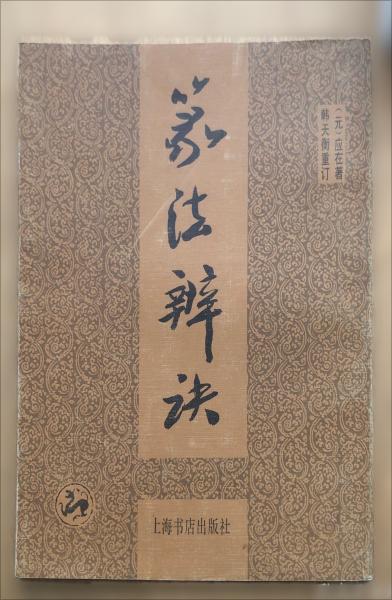 篆法辨诀
（元）应在著
韩天衡重订
上海书店出版社